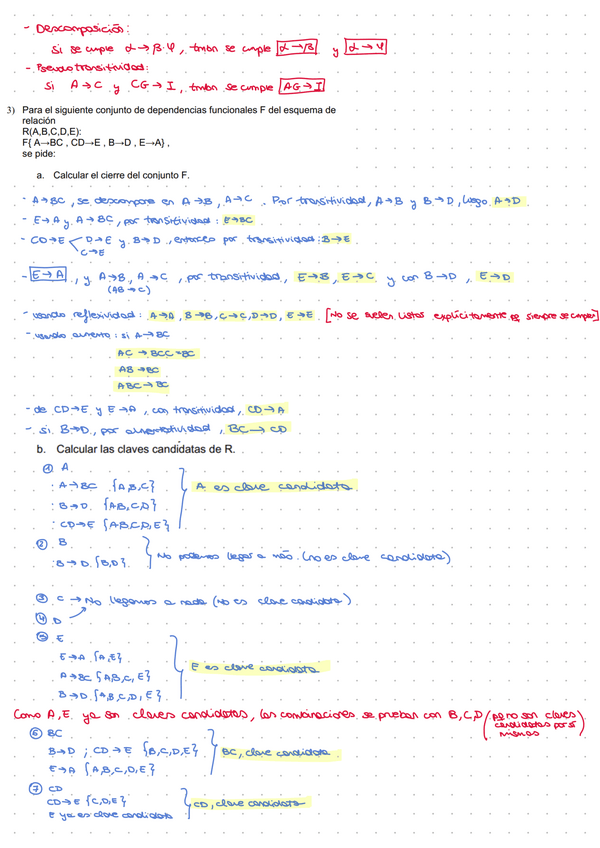 - Descomposición:
Si se cumple α→β·Ψ, tmbn se cumple α→β y α→Ψ
- Pseudotransitividad:
Si A→C y CG→I, tmbn se cumple AG→I
3) Para el siguiente conjunto de dependencias funcionales F del esquema de
relación
R(A,B,C,D,E):
F{ A→BC , CD→E , B→D , E→A} ,
se pide:
a. Calcular el cierre del conjunto F.
- A→BC, se descompone en A→B, A→C. Por transitividad, A→B y B→D, luego A→D
- E→A y A→BC, por transitividad: E→BC
- CD→E D→E y B→D, entonces por transitividad: B→E
C→E
- E→A, y A→B, A→C, por transitividad, E→B, E→C y con B→D, E→D
(AB→C)
- usando reflexividad: A→A, B→B, C→C, D→D, E→E [No se suelen listar explícitamente pq siempre se cumplen]
- usando aumento: si A→BC
AC→BCC=BC
AB→BC
ABC→BC
- de CD→E y E→A, con transitividad, CD→A
- si B→D, por aumentatividad, BC→CD
b. Calcular las claves candidatas de R.
① A
: A→BC {A,B,C} A es clave candidata
: B→D {A,B,C,D}
: CD→E {A,B,C,D,E}
② B
: B→D {B,D} No podemos llegar a más. (no es clave candidata)
③ C → No llegamos a nada (No es clave candidata)
④ D
⑤ E
E→A {A,E}
A→BC {A,B,C,E} E es clave candidata
B→D {A,B,C,D,E}
Como A,E ya son claves candidatas, las combinaciones se prueban con B,C,D (pq no son claves candidatas por sí mismas)
⑥ BC
B→D ; CD→E {B,C,D,E} BC, clave candidata
E→A {A,B,C,D,E}
⑦ CD
CD→E {C,D,E} CD, clave candidata
E ya es clave candidata